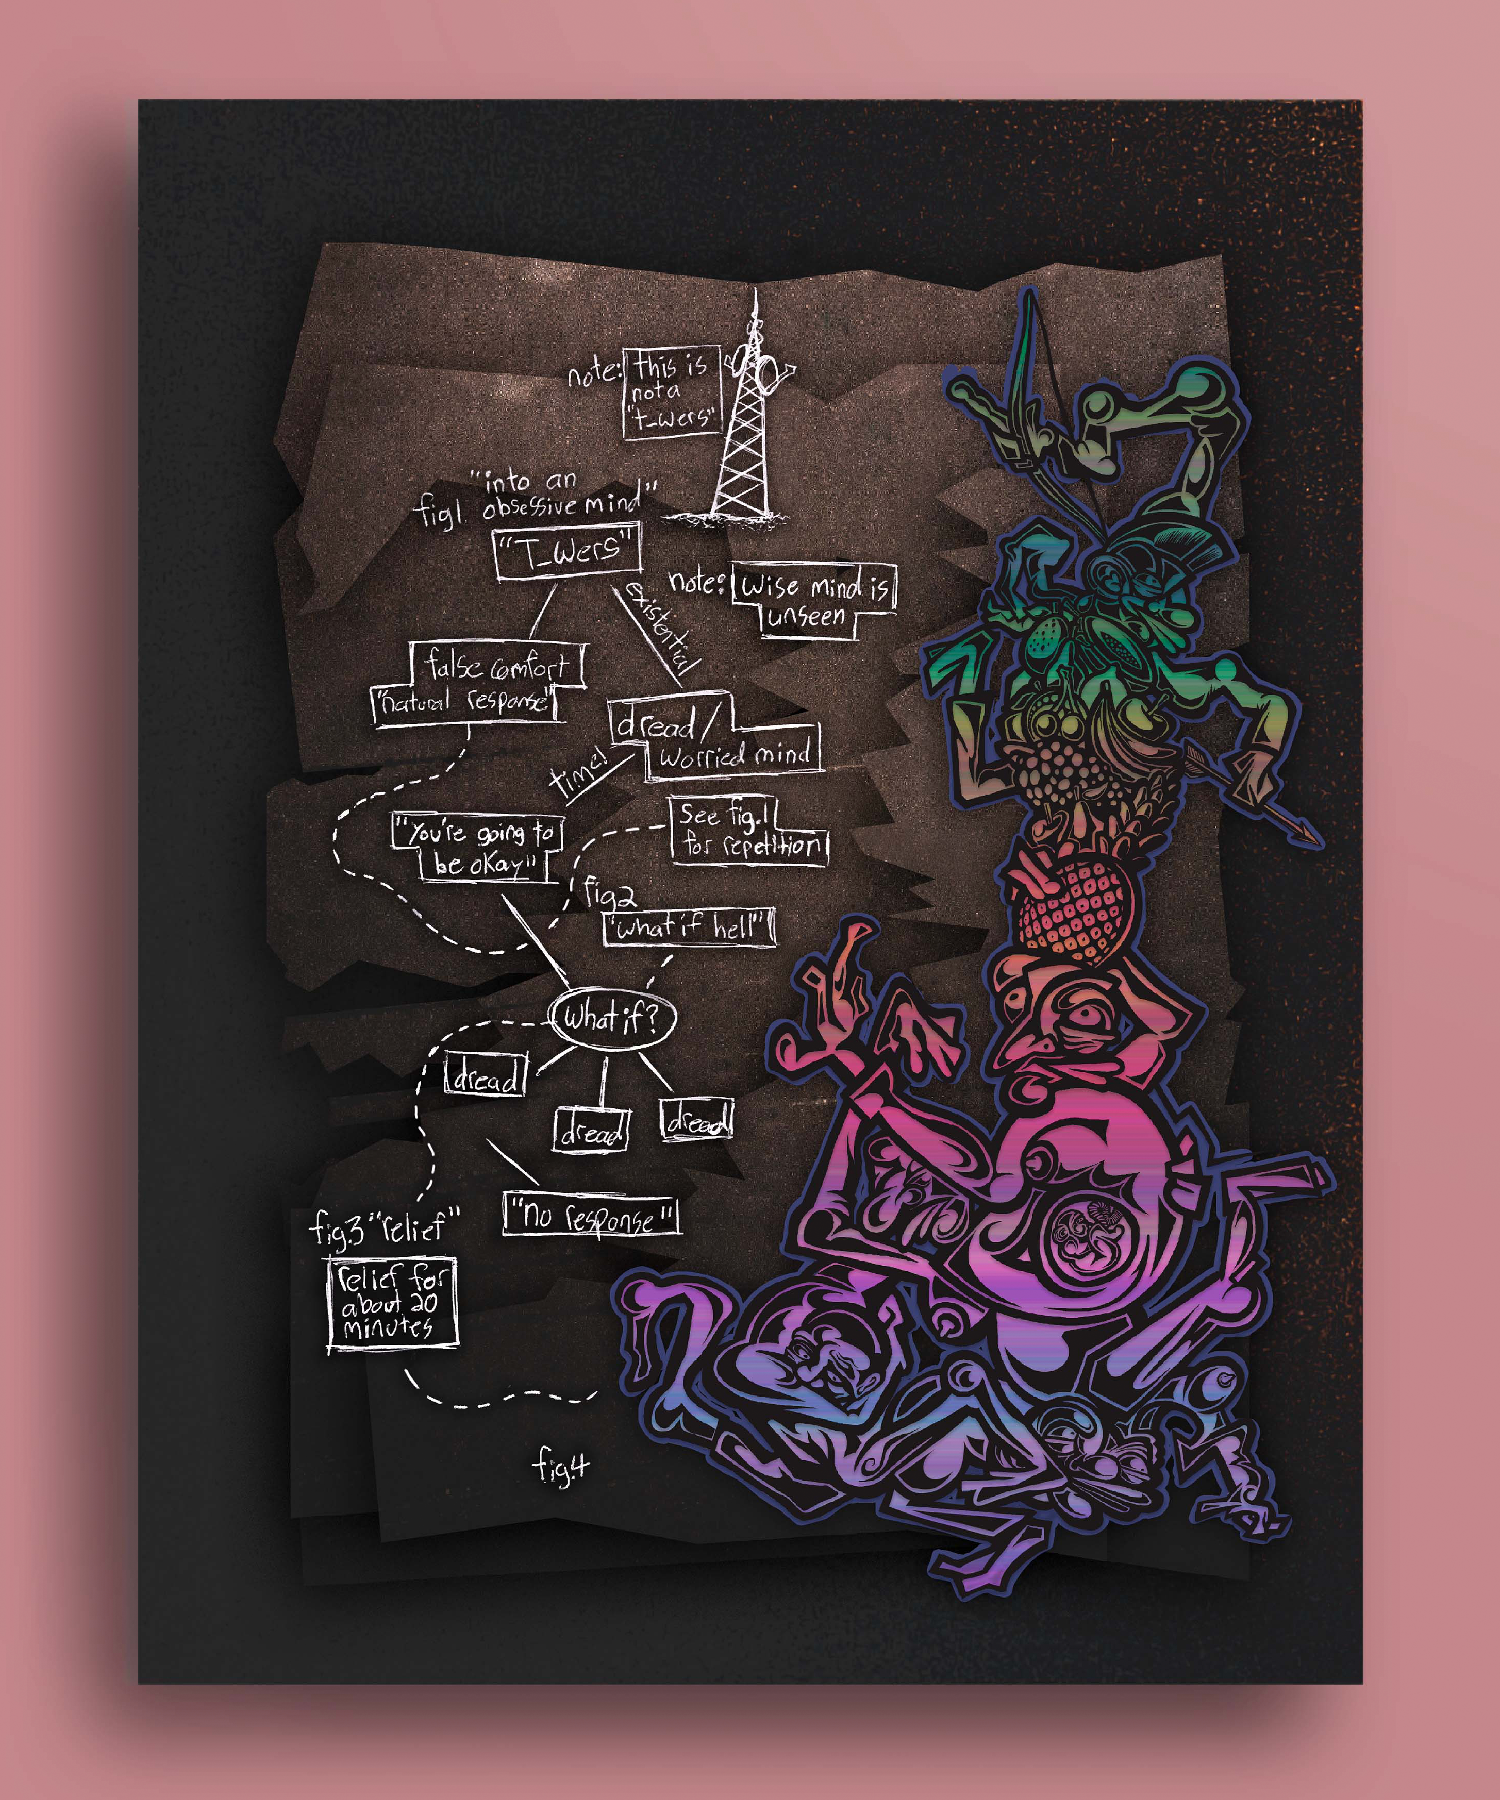 note: this is
not a
"t_wers"
"into an
fig1. obsessive mind"
"T_wers"
existential
note: Wise mind is
unseen
false comfort
"natural response"
dread/
worried mind
time!
"You're going to
be okay"
See fig.1
for repetition
fig2
"what if hell"
What if?
dread
dread
dread
"no response"
fig.3 "relief"
relief for
about 20
minutes
fig.4